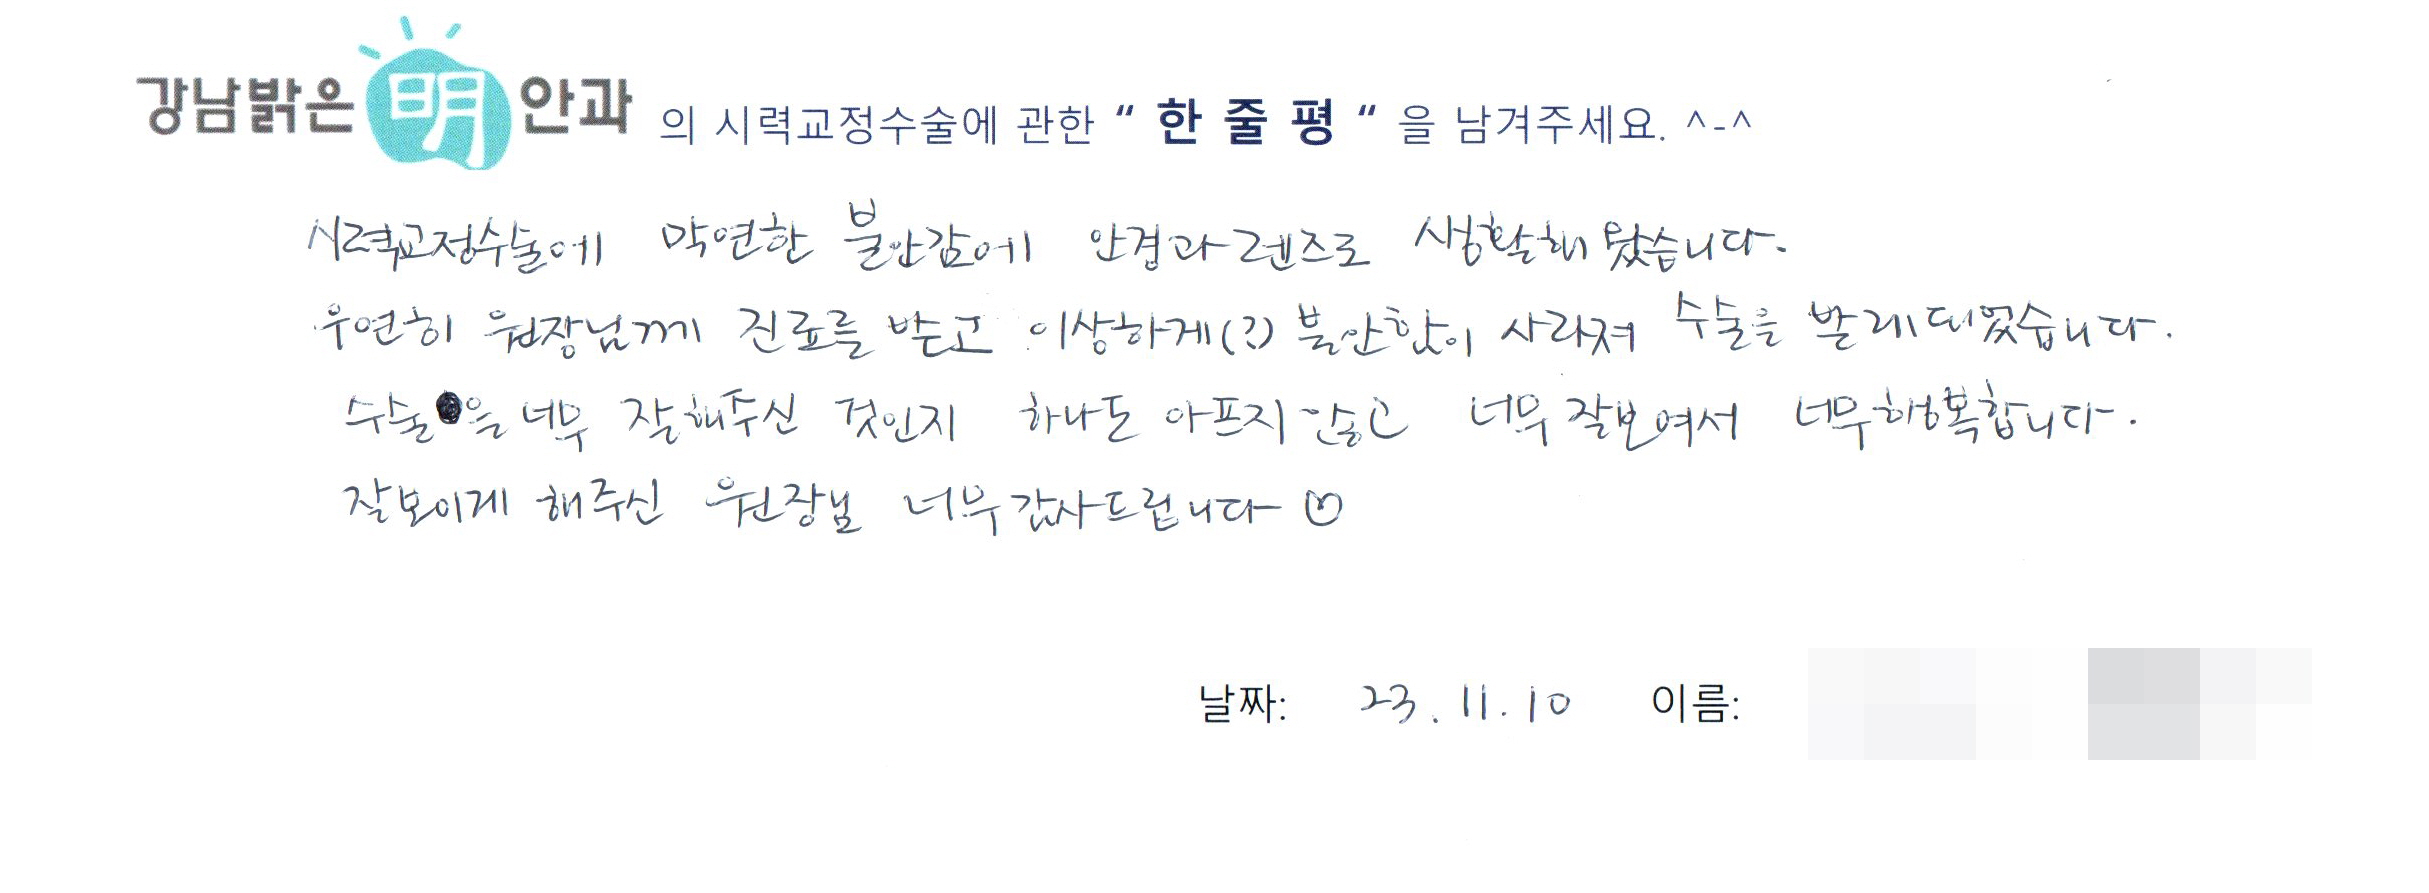 강남밝은 明 안과 의 시력교정수술에 관한 “ 한 줄 평 “ 을 남겨주세요. ^-^
시력교정수술에 막연한 불안감에 안경과 렌즈로 생활해 왔습니다.
우연히 원장님께 진료를 받고 이상하게(?) 불안함이 사라져 수술을 받게 되었습니다.
수술을 너무 잘해주신 것인지 하나도 아프지 않고 너무 잘보여서 너무행복합니다.
잘보이게 해주신 원장님 너무감사드립니다 ♡
날짜: 23.11.10 이름: